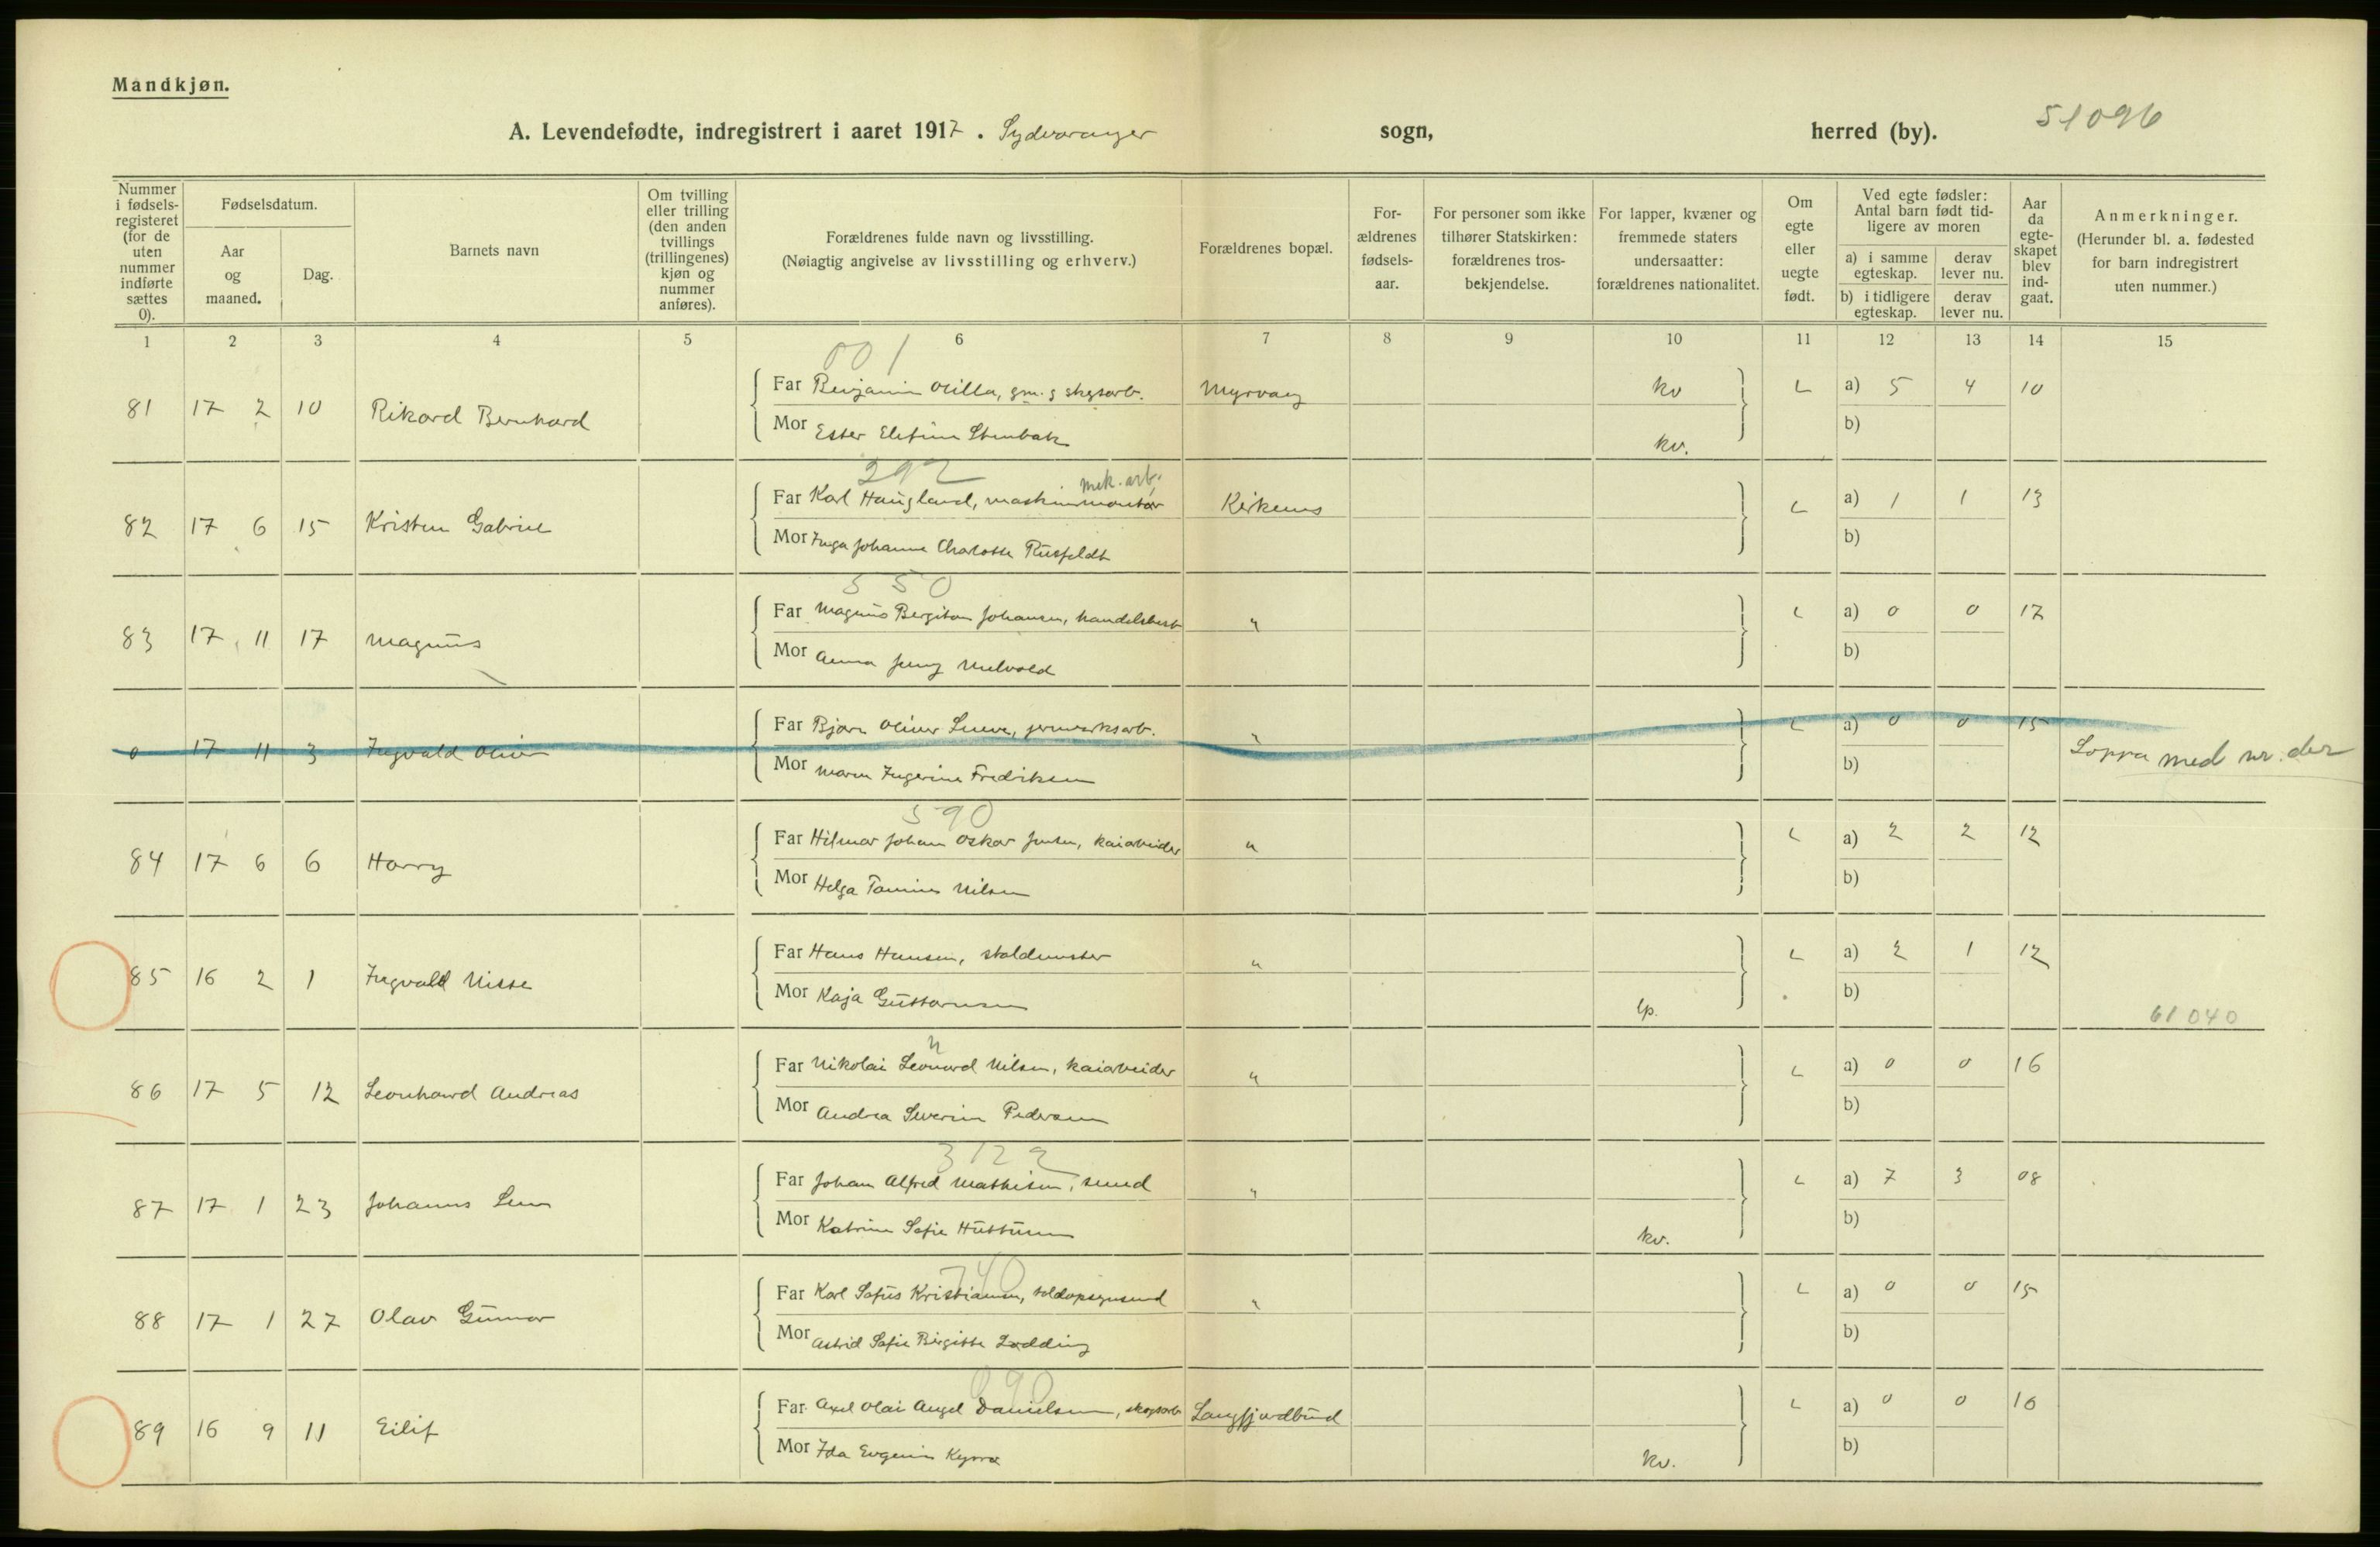 Mandkjøn.
A. Levendefødte, indregistrert i aaret 1917. Sydvaranger sogn, herred (by). 51096
Nummer i fødsels-registeret (for de uten nummer indførte sættes 0).
Fødselsdatum.
Aar og maaned.
Dag.
Barnets navn
Om tvilling eller trilling (den anden tvillings (trillingenes) kjøn og nummer anføres).
Forældrenes fulde navn og livsstilling.
(Nøiagtig angivelse av livsstilling og erhverv.)
Forældrenes bopæl.
For-ældrenes fødsels-aar.
For personer som ikke tilhører Statskirken: forældrenes tros-bekjendelse.
For lapper, kvæner og fremmede staters undersaatter: forældrenes nationalitet.
Om egte eller uegte født.
Ved egte fødsler: Antal barn født tid-ligere av moren
a) i samme egteskap. derav lever nu.
b) i tidligere egteskap. derav lever nu.
Aar da egte-skapet blev ind-gaat.
Anmerkninger.
(Herunder bl. a. fødested for barn indregistrert uten nummer.)
1 2 3 4 5 6 7 8 9 10 11 12 13 14 15
001
81 17 2 10 Rikard Bernhard Far Benjamin Pilla, gm. g skgsarb. kv L a) 5 4 10
Mor Ester Elefine Stenbak kv. b)
292 mek. arb.
82 17 6 15 Kristen Gabriel Far Karl Haugland, maskinmontør Kirkenes L a) 1 1 13
Mor Inga Johanne Charlotte Rusfeldt b)
550
83 17 11 17 Magnus Far Magnus Bergiton Johansen, handelsbest " L a) 0 0 17
Mor Anna Jenny Melvold b)
0 17 11 3 Ingvald Oliver Far Bjarn Oliver Sneve, jernverksarb. " L a) 0 0 15 Loppa med nr. der
Mor Maren Ingerine Fredriksen b)
590
84 17 6 6 Harry Far Hilmar Johan Oskar Jensen, kaiarbeider " L a) 2 2 12
Mor Helga Tomine Nilsen b)
85 16 2 1 Ingvald Nisse Far Hans Hansen, staldmester " L a) 2 1 12
Mor Kaja Gustavsen lp. b) 61040
"
86 17 5 12 Leonhard Andreas Far Nikolai Leonard Nilsen, kaiarbeider " L a) 0 0 16
Mor Andrea Severin Pedersen b)
3122
87 17 1 23 Johannes Far Johan Alfred Mathisen, smed " L a) 7 3 08
Mor Katrine Sofie Huttunen kv. b)
740
88 17 1 27 Olav Gunnar Far Karl Sofus Kristiansen, toldopsynsmd " L a) 0 0 15
Mor Astrid Sofie Birgitte Lødding b)
090
89 16 9 11 Eilif Far Axel Olai Angel Danielsen, skogsarb Langfjordbund L a) 0 0 16
Mor Ida Evgenie Kyrrø kv. b)